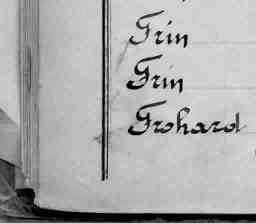 Frin
Frin
Frohard